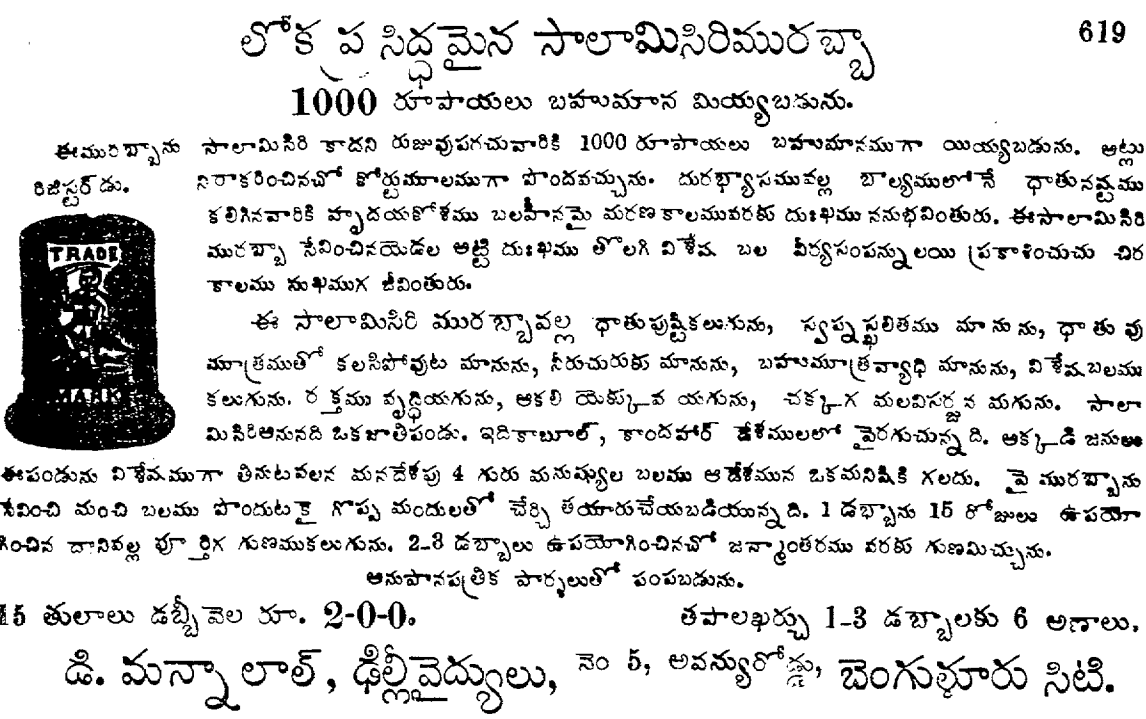 619
లోక ప్రసిద్ధమైన సాలామిసిరిమురబ్బా
1000 రూపాయలు బహుమాన మియ్యబడును.
ఈమురబ్బాను సాలామిసిరి కాదని రుజువుపరచువారికి 1000 రూపాయలు బహుమానముగా యియ్యబడును. అట్లు
రిజిస్టర్డు. నిరాకరించినచో కోర్టుమూలముగా పొందవచ్చును. దురభ్యాసమువల్ల బాల్యములోనే ధాతునష్టము
కలిగినవారికి హృదయకోశము బలహీనమై మరణకాలమువరకు దుఃఖము ననుభవింతురు. ఈసాలామిసిరి
TRADE మురబ్బా సేవించినయెడల అట్టి దుఃఖము తొలగి విశేష బల వీర్యసంపన్నులయి ప్రకాశించుచు చిర
కాలము సుఖముగ జీవింతురు.
ఈ సాలామిసిరి మురబ్బావల్ల ధాతుపుష్టికలుగును, స్వప్నస్ఖలితము మానును, ధాతువు
మూత్రముతో కలసిపోవుట మానును, నీరుచురుకు మానును, బహుమూత్రవ్యాధి మానును, విశేషబలము
MARK కలుగును. రక్తము వృద్ధియగును, ఆకలి యెక్కువ యగును, చక్కగ మలవిసర్జన మగును. సాలా
మిసిరిఅనునది ఒకజాతిపండు. ఇదికాబూల్, కాందహార్ దేశములలో పైరగుచున్నది. అక్కడి జనులు
ఈపండును విశేషముగా తినుటవలన మనదేశపు 4 గురు మనుష్యుల బలము ఆదేశమున ఒకమనిషికి గలదు. పై మురబ్బాను
సేవించి మంచి బలము పొందుటకై గొప్ప మందులతో చేర్చి తయారుచేయబడియున్నది. 1 డబ్బాను 15 రోజులు ఉపయో
గించిన దానివల్ల పూర్తిగ గుణముకలుగును. 2-3 డబ్బాలు ఉపయోగించినచో జన్మాంతరము వరకు గుణమిచ్చును.
అనుపానపత్రిక పార్సలుతో పంపబడును.
15 తులాలు డబ్బీవెల రూ. 2-0-0. తపాలఖర్చు 1-3 డబ్బాలకు 6 అణాలు.
డి. మన్నాలాల్, ఢిల్లీవైద్యులు, నెం 5, అవన్యురోడ్డు, బెంగుళూరు సిటి.